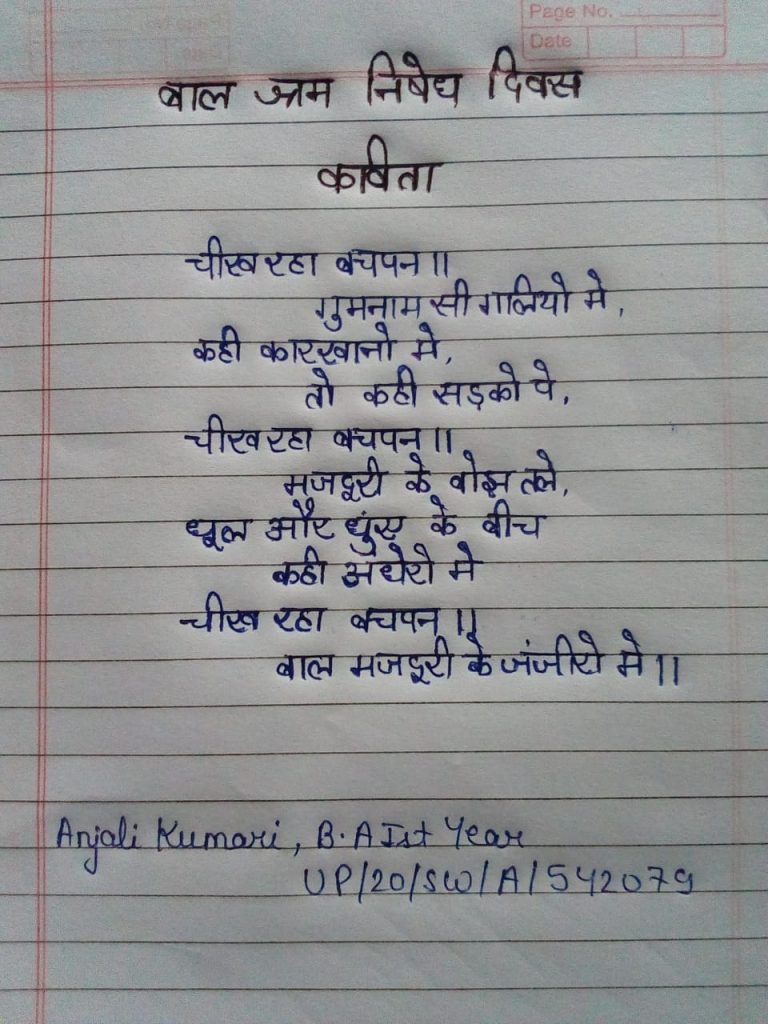 Page No.
Date
बाल श्रम निषेध दिवस
कविता
चीख रहा बचपन॥
गुमनाम सी गालियो मे,
कही कारखानो मे,
तो कही सड़को पे,
चीख रहा बचपन॥
मजदूरी के बोझ तले,
धूल और धुंए के बीच
कही अंधेरो मे
चीख रहा बचपन॥
बाल मजदूरी के जंजीरो मे॥
Anjali Kumari, B.A Ist Year
UP/20/SW/A/542079